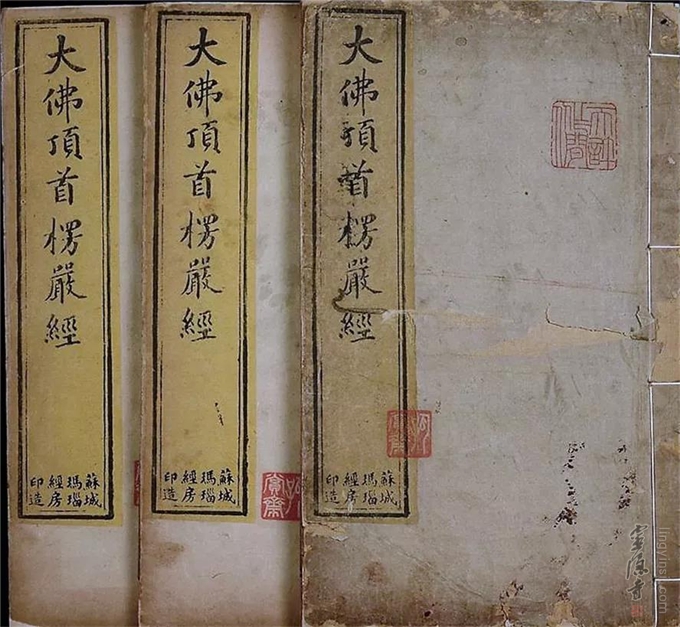 大佛頂首楞嚴經
蘇城
瑪瑙
經房
印造
大佛頂首楞嚴經
蘇城
瑪瑙
經房
印造
大佛頂首楞嚴經
蘇城
瑪瑙
經房
印造
lingyins.com